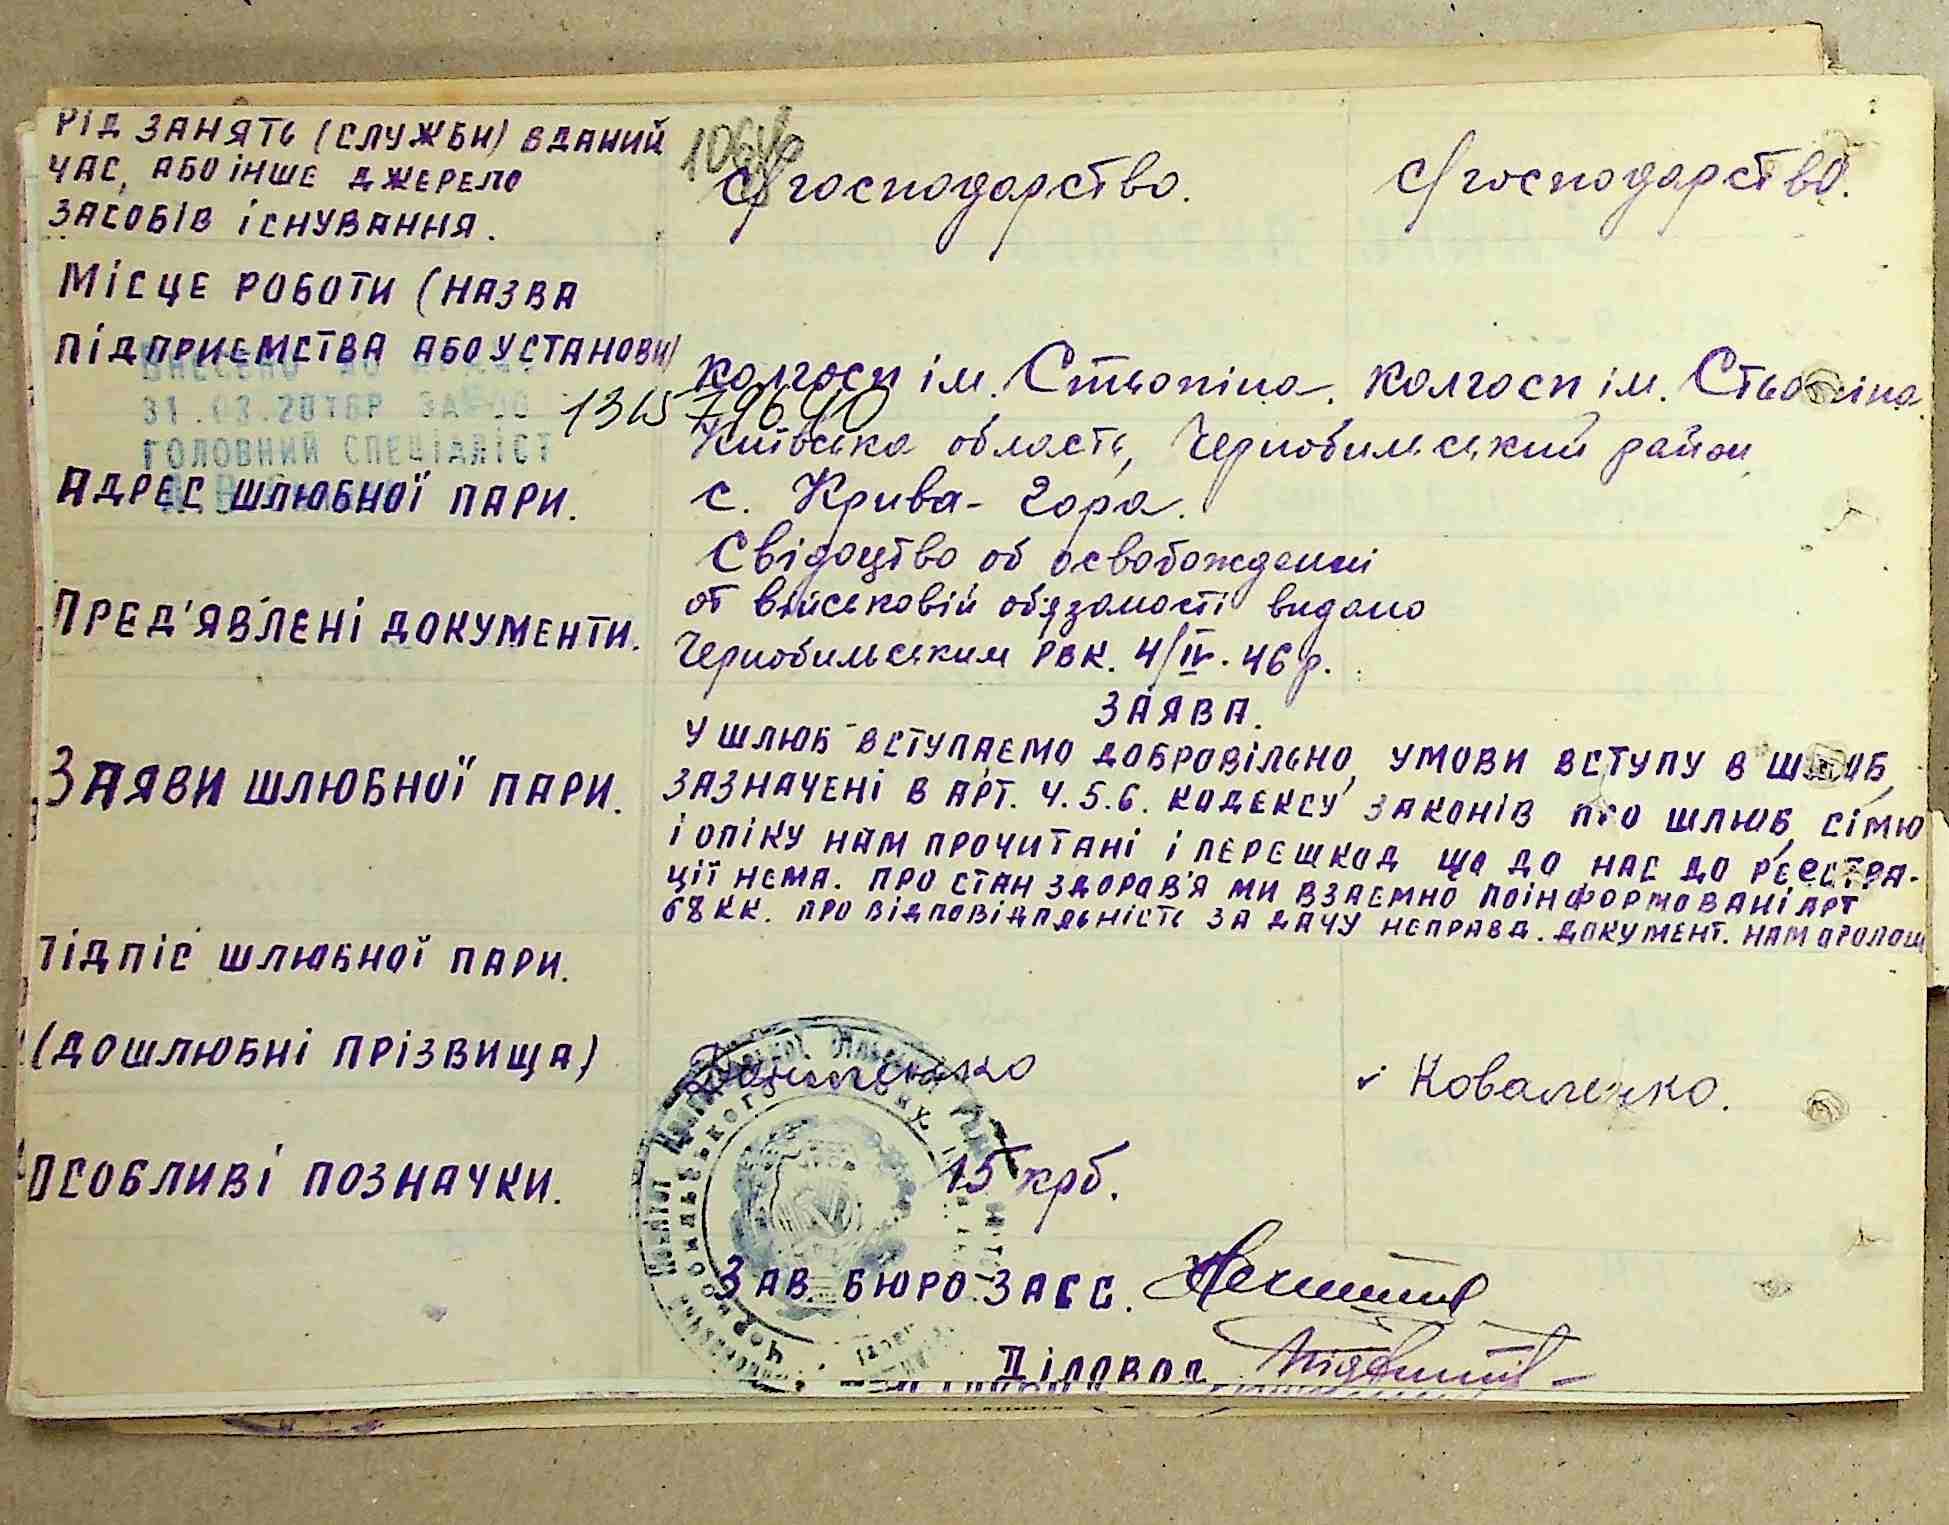 РІД ЗАНЯТЬ (СЛУЖБИ) В ДАНИЙ
ЧАС, АБО ІНШЕ ДЖЕРЕЛО
ЗАСОБІВ ІСНУВАННЯ.
с/господарство. с/господарство.
МІСЦЕ РОБОТИ (НАЗВА
ПІДПРИЄМСТВА АБО УСТАНОВИ)
колгосп ім. Стьопіна. колгосп ім. Стьопіна.
ВНЕСЕНО ДО
31.03.2016Р ЗА
ГОЛОВНИЙ СПЕЦІАЛІСТ
АДРЕС ШЛЮБНОЇ ПАРИ.
Київська область, Чернобильський район,
с. Крива-Гора.
ПРЕД'ЯВЛЕНІ ДОКУМЕНТИ.
Свідоцтво об освобожденні
от військовій обязаности видано
Чернобильським РВК. 4/IV. 46 р.
ЗАЯВИ ШЛЮБНОЇ ПАРИ.
ЗАЯВА.
У ШЛЮБ ВСТУПАЄМО ДОБРОВІЛЬНО, УМОВИ ВСТУПУ В ШЛЮБ,
ЗАЗНАЧЕНІ В АРТ. 4.5.6. КОДЕКСУ ЗАКОНІВ ПРО ШЛЮБ, СІМЮ
І ОПІКУ НАМ ПРОЧИТАНІ І ПЕРЕШКОД ЩО ДО НАС ДО РЕЄСТРА-
ЦІЇ НЕМА. ПРО СТАН ЗДОРОВ'Я МИ ВЗАЄМНО ПОІНФОРМОВАНІ АРТ
68 КК. ПРО ВІДПОВІДАЛЬНІСТЬ ЗА ДАЧУ НЕПРАВД. ДОКУМЕНТ. НАМ ОГОЛОШ
ПІДПІС ШЛЮБНОЇ ПАРИ.
(ДОШЛЮБНІ ПРІЗВИЩА)
Коваленко.
ОСОБЛИВІ ПОЗНАЧКИ.
15 крб.
ЗАВ. БЮРО ЗАГС.
ДІЛОВОД